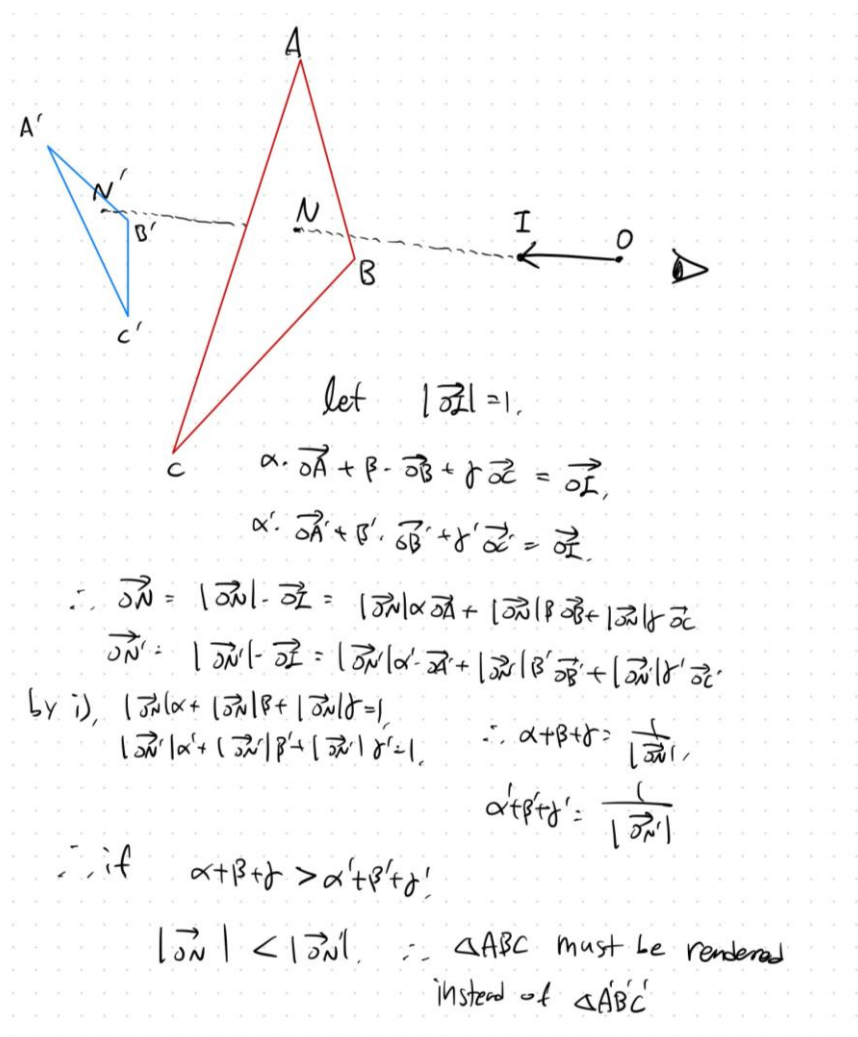 A
A'
N'
N
I
O
B'
B
C'
C
let |OI⃗| = 1.
α · OA⃗ + β · OB⃗ + γ OC⃗ = OI⃗,
α' · OA'⃗ + β' · OB'⃗ + γ' OC'⃗ = OI⃗.
∴ ON⃗ = |ON⃗| · OI⃗ = |ON⃗|α OA⃗ + |ON⃗|β OB⃗ + |ON⃗|γ OC⃗
ON'⃗ = |ON'⃗| · OI⃗ = |ON'⃗|α' · OA'⃗ + |ON'⃗|β' OB'⃗ + |ON'⃗|γ' OC'⃗
by i), |ON⃗|α + |ON⃗|β + |ON⃗|γ = 1,
|ON'⃗|α' + |ON'⃗|β' + |ON'⃗|γ' = 1.
∴ α+β+γ = 1/|ON⃗|,
α'+β'+γ' = 1/|ON'⃗|
∴ if α+β+γ > α'+β'+γ',
|ON⃗| < |ON'⃗|. ∴ △ABC must be rendered
instead of △A'B'C'